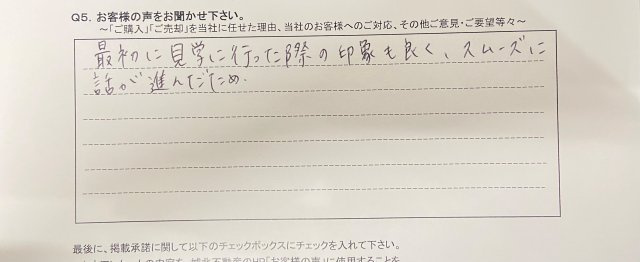 Q5. お客様の声をお聞かせ下さい。
～「ご購入」「ご売却」を当社に任せた理由、当社のお客様へのご対応、その他ご意見・ご要望等々～
最初に見学に行った際の印象も良く、スムーズに
話が進んだため.
最後に、掲載承諾に関して以下のチェックボックスにチェックを入れて下さい。
の内容を、城北不動産のHP「お客様の声」に使用することを